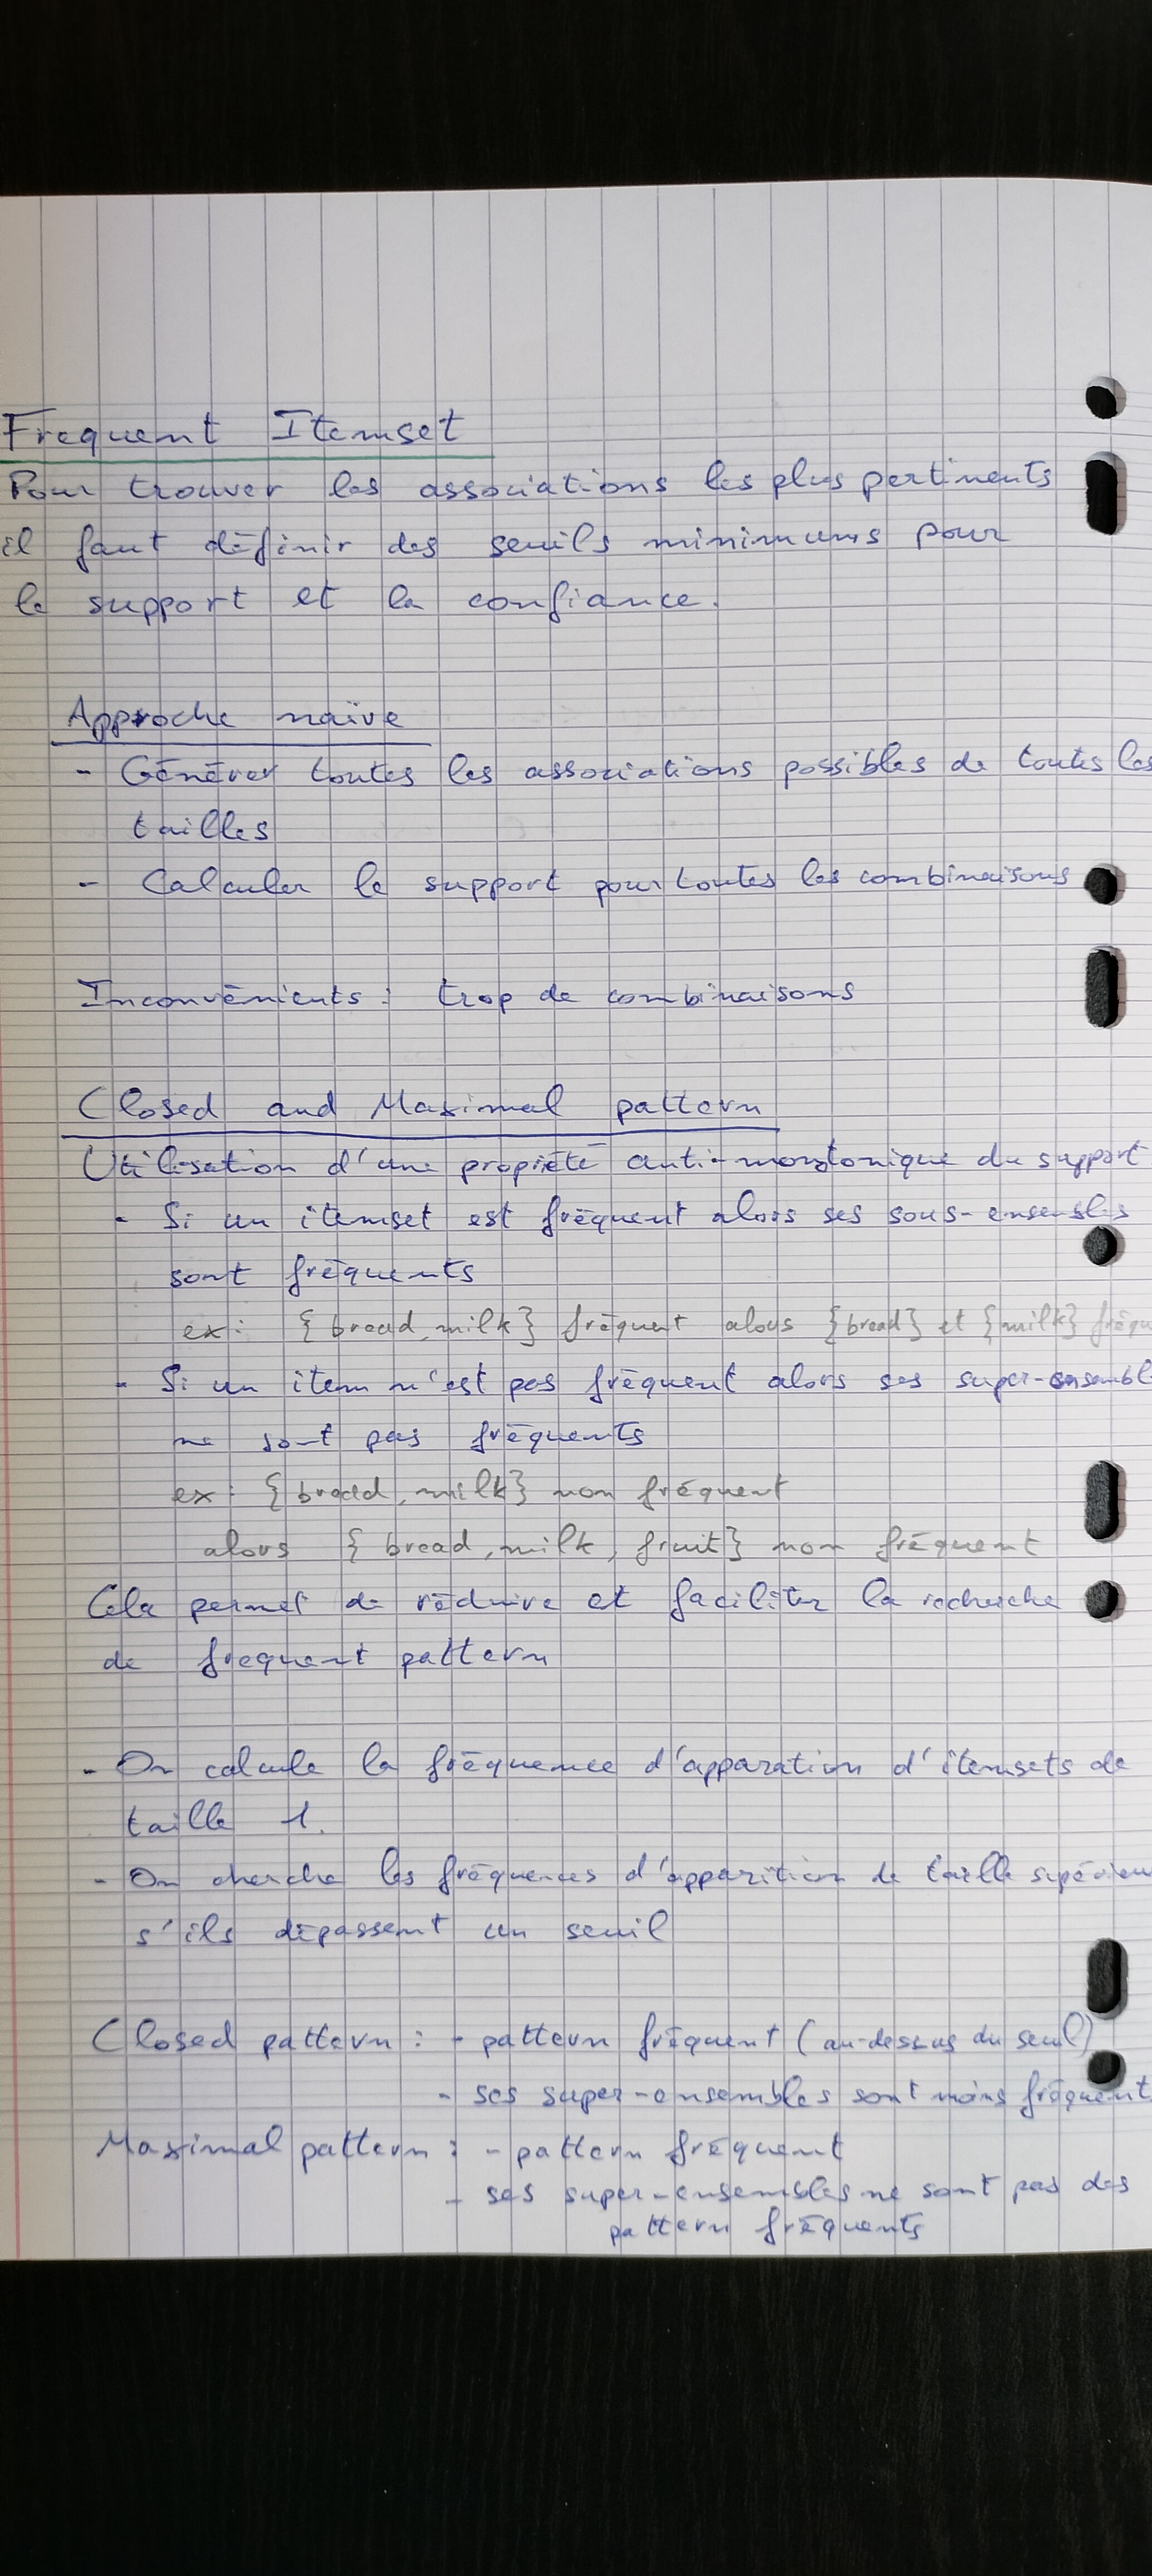 Frequent Itemset
Pour trouver les associations les plus pertinents
il faut définir des seuils minimums pour
le support et la confiance.
Approche naïve
- Générer toutes les associations possibles de toutes les
tailles
- Calculer le support pour toutes les combinaisons
Inconvénients : trop de combinaisons
Closed and Maximal pattern
Utilisation d'une propriété anti-monotonique du support
- Si un itemset est fréquent alors ses sous-ensembles
sont fréquents
ex: {bread, milk} fréquent alors {bread} et {milk} fréqu
- Si un item n'est pas fréquent alors ses super-ensembl
ne sont pas fréquents
ex: {bread, milk} non fréquent
alors {bread, milk, fruit} non fréquent
Cela permet de réduire et faciliter la recherche
de frequent pattern
- On calcule la fréquence d'apparation d'itemsets de
taille 1.
- On cherche les fréquences d'apparition de taille supérieu
s'ils dépassent un seuil
Closed pattern : - pattern fréquent (au-dessus du seuil)
- ses super-ensembles sont moins fréquent
Maximal pattern : - pattern fréquent
- ses super-ensembles ne sont pas des
pattern fréquents